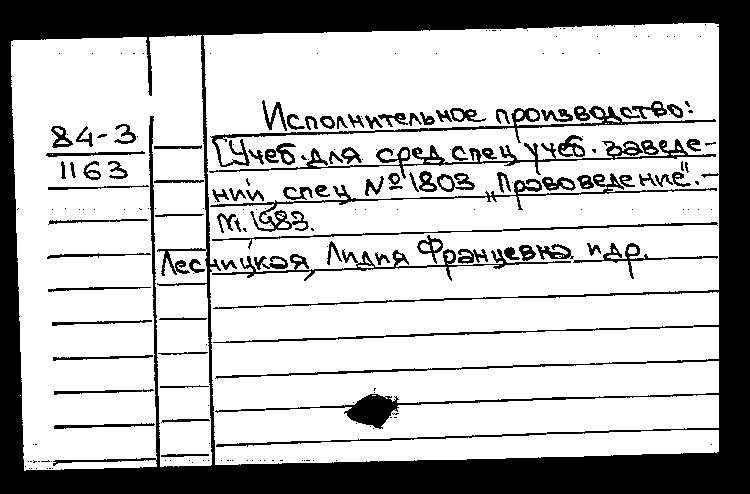 Исполнительное производство:
84-3
[Учеб. для сред спец учеб. заведе-
1163
ний, спец №1803 „Прововедение". -
М. 1983.
Лесницкая, Лидия Францевна и др.